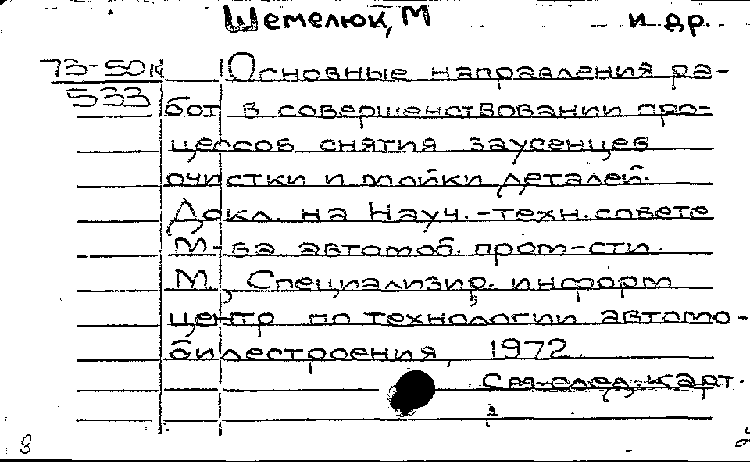 Шемелюк, М и др.
73-50к Основные направления ра-
533 бот в совершенствовании про-
цессов снятия заусенцев
очистки и мойки деталей.
Докл. на Науч.-техн. совете
М-ва автомоб. пром-сти.
М., Специализир. информ
центр по технологии автомо-
билестроения, 1972
См. след. карт.
8